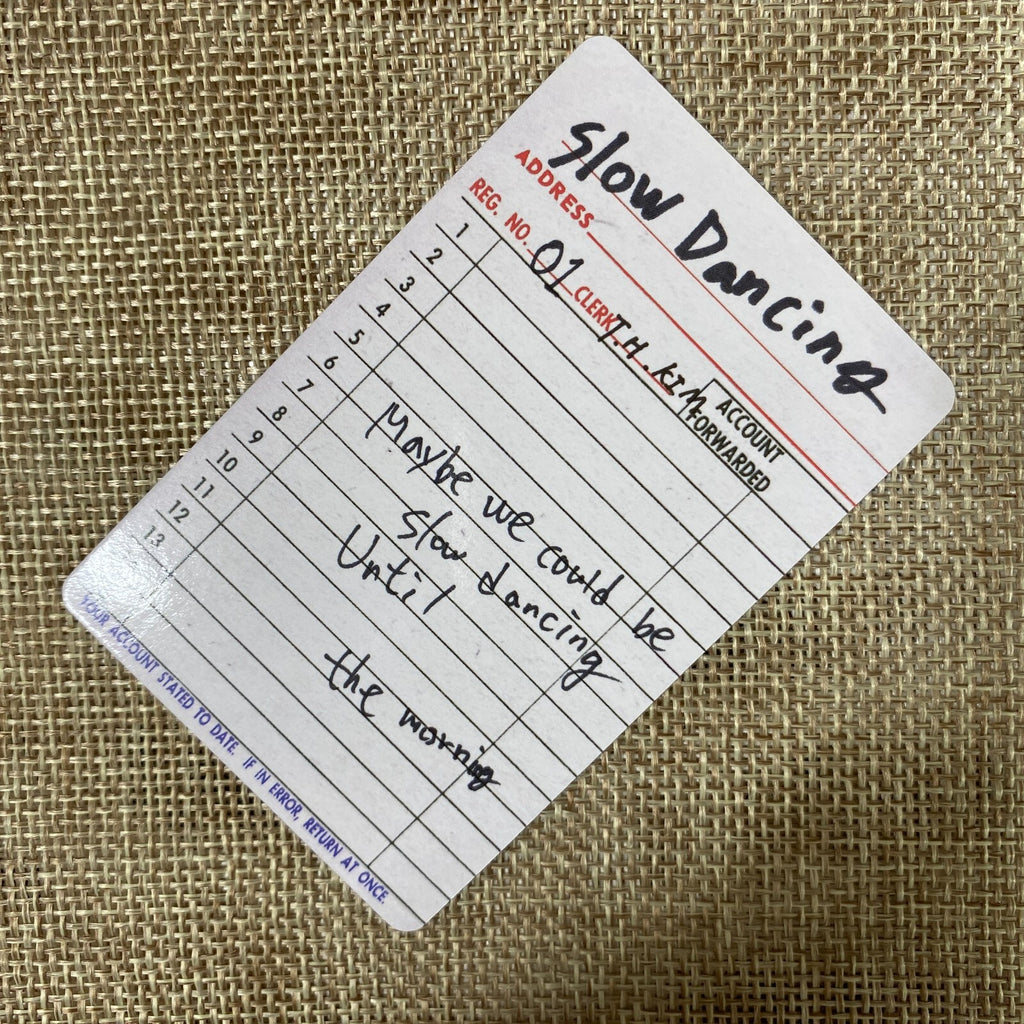 Slow Dancing
ADDRESS
REG. NO. 01 CLERK T.H.KIM
ACCOUNT
FORWARDED
1
2
3
4
5
6
7
8
9
10
11
12
13
Maybe we could be
slow dancing
Until
the morning
YOUR ACCOUNT STATED TO DATE. IF IN ERROR, RETURN AT ONCE.